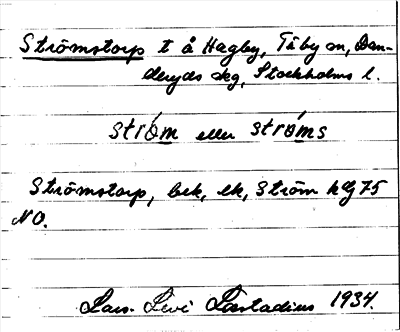 Strömstorp t å Hagby, Täby sn, Dan-
deryds skg, Stockholms l.
ström eller ströms
Strömstorp, bek, ek, Ström hg 75
NO.
Lars Levi Læstadius 1934.